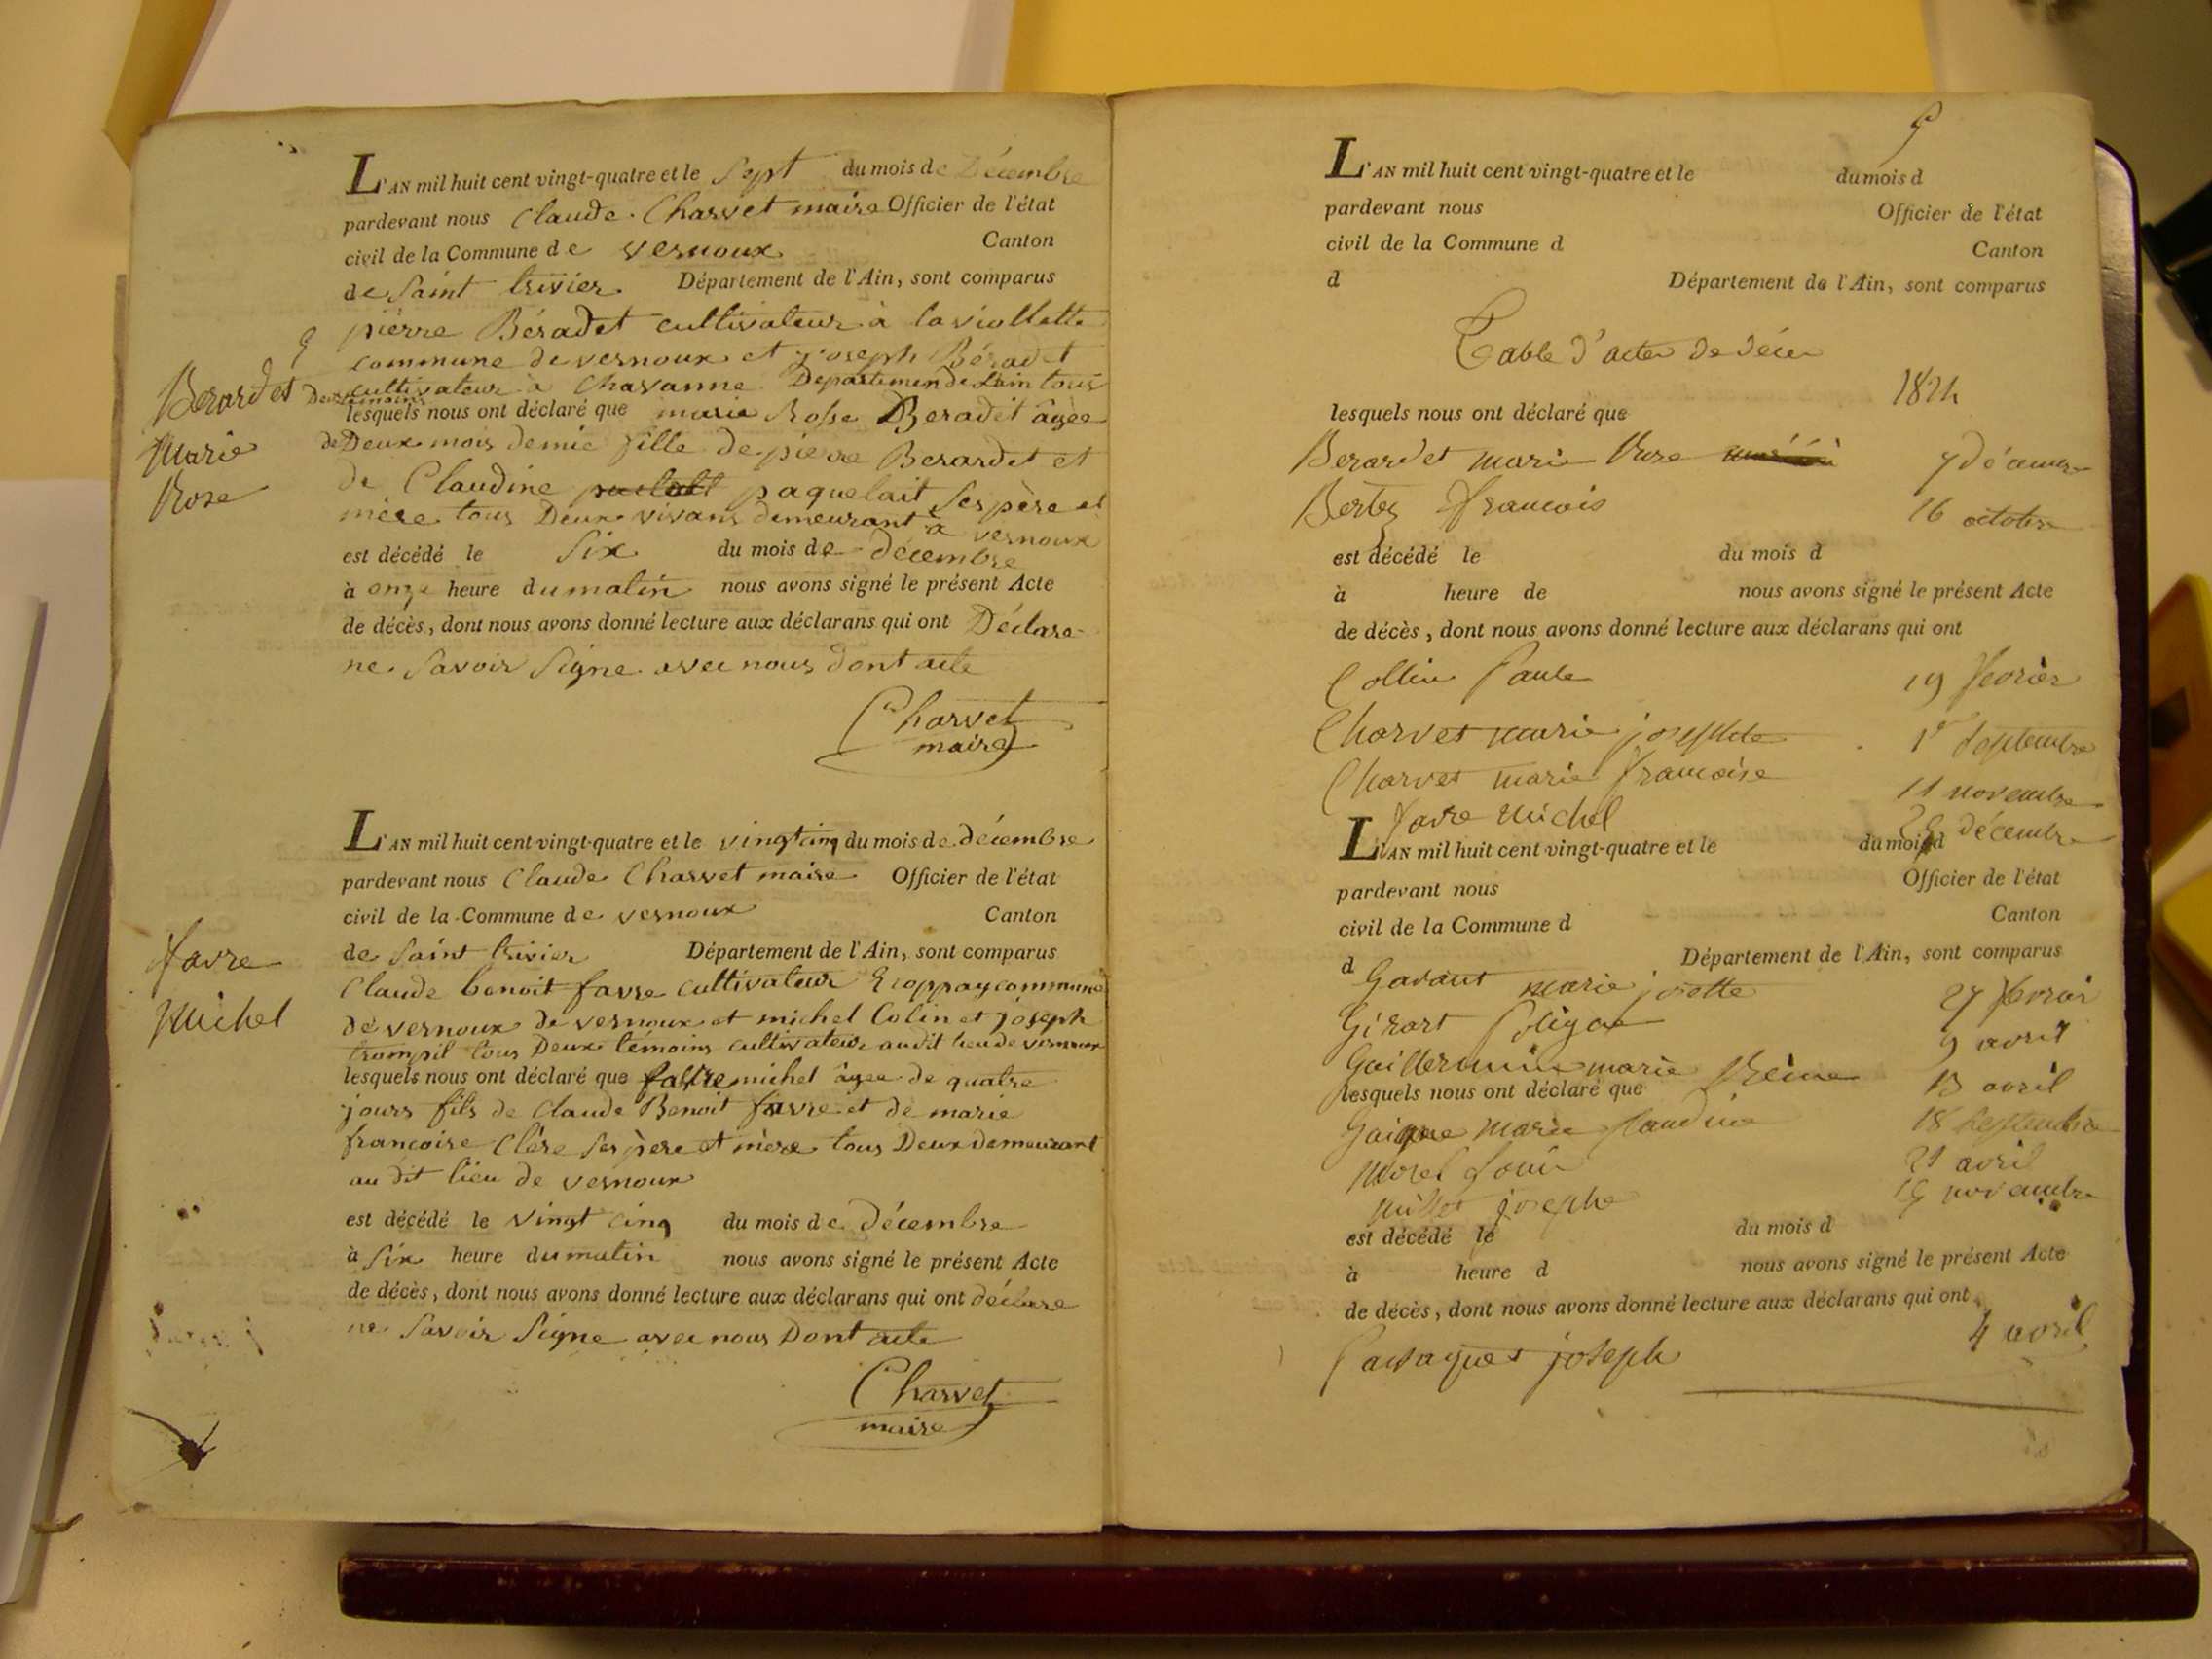 L'AN mil huit cent vingt-quatre et le Sept du mois de Décembre
pardevant nous Claude Charvet maire Officier de l'état
civil de la Commune de vernoux Canton
de Saint trivier Département de l'Ain, sont comparus
pierre Béradet cultivateur à la viollette
commune de vernoux et joseph Béradet
cultivateur à Chavanne Departemen de Lain tous
Deux temoins
lesquels nous ont déclaré que marie Rosse Beradet âgèe
de Deux mois demie fille de pierre Berardet et
de Claudine paquelait Ses père et
mère tous Deux vivans demeurant à vernoux
est décédé le Six du mois de décembre
à onze heure du matin nous avons signé le présent Acte
de décès, dont nous avons donné lecture aux déclarans qui ont Déclare
ne Savoir Signe avec nous Dont acte
Charvet
maire
9
Berardet
Marie
Rose
L'AN mil huit cent vingt-quatre et le vingt cinq du mois de décembre
pardevant nous Claude Charvet maire Officier de l'état
civil de la Commune de vernoux Canton
de Saint trivier Département de l'Ain, sont comparus
Claude benoit favre cultivateur commune
de vernoux de vernoux et michel Colin et joseph
trompil tous Deux temoins cultivateur audit lieu de vernoux
lesquels nous ont déclaré que favre michel âgee de quatre
jours fils de Claude Benoit favre et de marie
francoise Clère Ses père et mère tous Deux demeurant
au dit lieu de vernoux
est décédé le vingt cinq du mois de Décembre
à Six heure du matin nous avons signé le présent Acte
de décès, dont nous avons donné lecture aux déclarans qui ont déclare
ne Savoir Signe avec nous Dont acte
Charvet
maire
favre
Michel
L'AN mil huit cent vingt-quatre et le du mois d
pardevant nous Officier de l'état
civil de la Commune d Canton
d Département de l'Ain, sont comparus
Table d'actes de décès
1824
lesquels nous ont déclaré que
Berardet marie Rose 7 décembre
Bertez francois 16 octobre
est décédé le du mois d
à heure de nous avons signé le présent Acte
de décès, dont nous avons donné lecture aux déclarans qui ont
Collin Paule 19 fevrier
Charvet marie josephte 1er Septembre
Charvet marie francoise 11 novembre
favre Michel 25 décembre
L'AN mil huit cent vingt-quatre et le du mois d
pardevant nous Officier de l'état
civil de la Commune d Canton
d Département de l'Ain, sont comparus
Gavant marie josette 27 fevrier
Girart 9 avril
Guillermin marie Reine 13 avril
lesquels nous ont déclaré que
marie Claudine 18 Septembre
Morel Louis 21 avril
Millet josephe 19 novembre
est décédé le du mois d
à heure d nous avons signé le présent Acte
de décès, dont nous avons donné lecture aux déclarans qui ont
joseph 4 avril